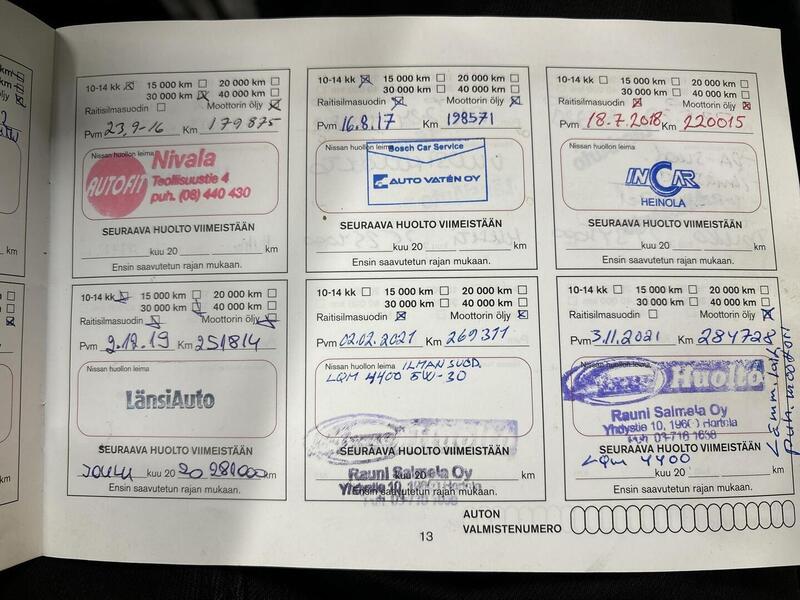 10-14 kk 15 000 km 20 000 km
30 000 km 40 000 km
Raitisilmasuodin Moottorin öljy
Pvm 23.9-16 Km 179875
Nissan huollon leima
AUTOFIT Nivala
Teollisuustie 4
puh. (08) 440 430
SEURAAVA HUOLTO VIIMEISTÄÄN
kuu 20 km
Ensin saavutetun rajan mukaan.
10-14 kk 15 000 km 20 000 km
30 000 km 40 000 km
Raitisilmasuodin Moottorin öljy
Pvm 16.8.17 Km 198571
Nissan huollon leima
Bosch Car Service
AUTO VATÉN OY
SEURAAVA HUOLTO VIIMEISTÄÄN
kuu 20 km
Ensin saavutetun rajan mukaan.
10-14 kk 15 000 km 20 000 km
30 000 km 40 000 km
Raitisilmasuodin Moottorin öljy
Pvm 18.7.2018 Km 220015
Nissan huollon leima
INCAR
HEINOLA
SEURAAVA HUOLTO VIIMEISTÄÄN
kuu 20 km
Ensin saavutetun rajan mukaan.
10-14 kk 15 000 km 20 000 km
30 000 km 40 000 km
Raitisilmasuodin Moottorin öljy
Pvm 2.12.19 Km 251814
Nissan huollon leima
LänsiAuto
SEURAAVA HUOLTO VIIMEISTÄÄN
JOULU kuu 20 20 281000 km
Ensin saavutetun rajan mukaan.
10-14 kk 15 000 km 20 000 km
30 000 km 40 000 km
Raitisilmasuodin Moottorin öljy
Pvm 02.02.2021 Km 269311
Nissan huollon leima ILMANSUOD.
LQM 4400 5W-30
Huolto
SEURAAVA HUOLTO VIIMEISTÄÄN
Rauni Salmela Oy
kuu 20 km
Yhdystie 10, Hartola
Ensin saavutetun rajan mukaan.
10-14 kk 15 000 km 20 000 km
30 000 km 40 000 km
Raitisilmasuodin Moottorin öljy
Pvm 3.11.2021 Km 284728
Nissan huollon leima
Huolto
Rauni Salmela Oy
Yhdystie 10, Hartola
SEURAAVA HUOLTO VIIMEISTÄÄN
LQM 4400
kuu 20 km
Ensin saavutetun rajan mukaan.
13
AUTON
VALMISTENUMERO